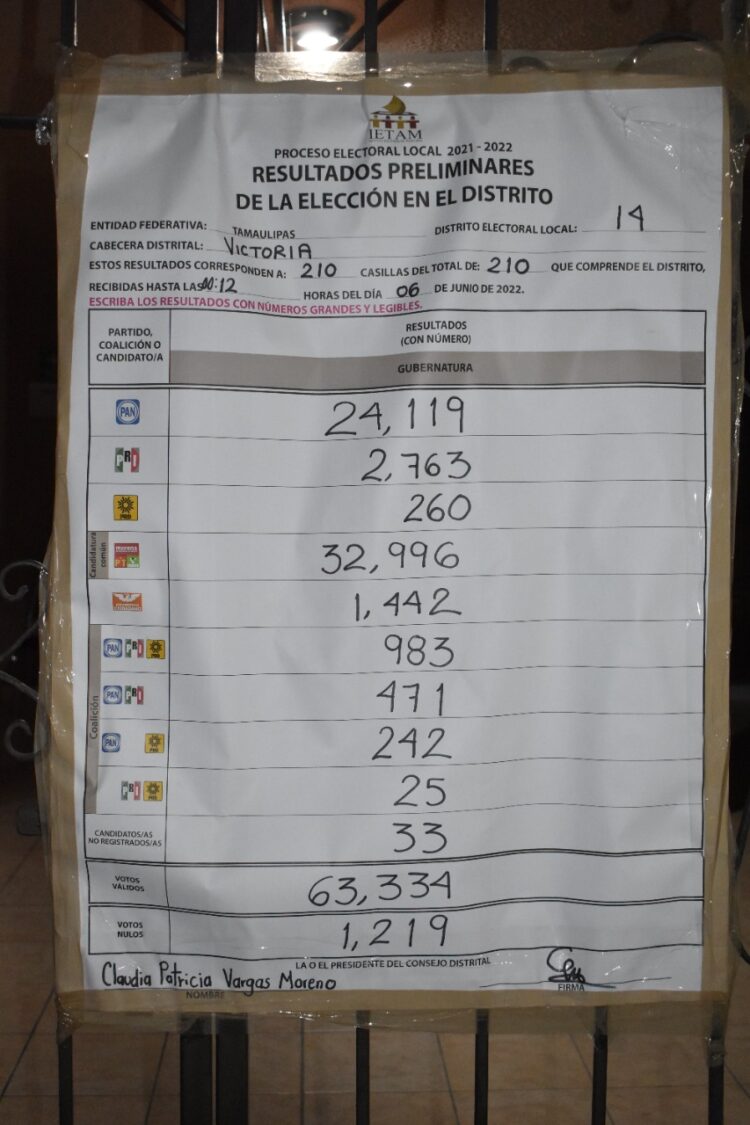 IETAM
PROCESO ELECTORAL LOCAL 2021 - 2022
RESULTADOS PRELIMINARES
DE LA ELECCIÓN EN EL DISTRITO
ENTIDAD FEDERATIVA: TAMAULIPAS DISTRITO ELECTORAL LOCAL: 14
CABECERA DISTRITAL: VICTORIA
ESTOS RESULTADOS CORRESPONDEN A: 210 CASILLAS DEL TOTAL DE: 210 QUE COMPRENDE EL DISTRITO,
RECIBIDAS HASTA LAS 00:12 HORAS DEL DÍA 06 DE JUNIO DE 2022.
ESCRIBA LOS RESULTADOS CON NÚMEROS GRANDES Y LEGIBLES.
PARTIDO, COALICIÓN O CANDIDATO/A
RESULTADOS
(CON NÚMERO)
GUBERNATURA
PAN 24,119
PRI 2,763
PRD 260
Candidatura común morena PT 32,996
1,442
Coalición
PAN PRI PRD 983
PAN PRI 471
PAN PRD 242
PRI PRD 25
CANDIDATOS/AS NO REGISTRADOS/AS 33
VOTOS VÁLIDOS 63,334
VOTOS NULOS 1,219
LA O EL PRESIDENTE DEL CONSEJO DISTRITAL
Claudia Patricia Vargas Moreno
NOMBRE FIRMA